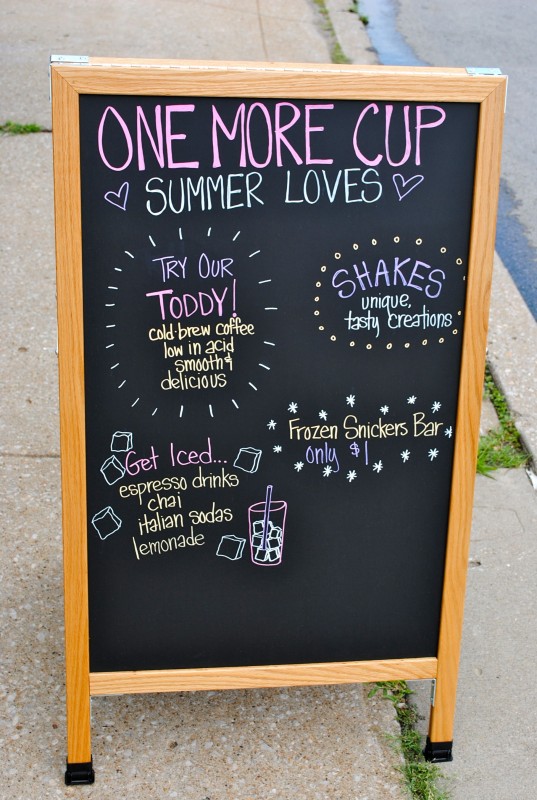 ONE MORE CUP
SUMMER LOVES
TRY OUR
TODDY!
cold-brew coffee
low in acid
smooth &
delicious
SHAKES
unique,
tasty creations
Frozen Snickers Bar
only $1
Get Iced...
espresso drinks
chai
italian sodas
lemonade